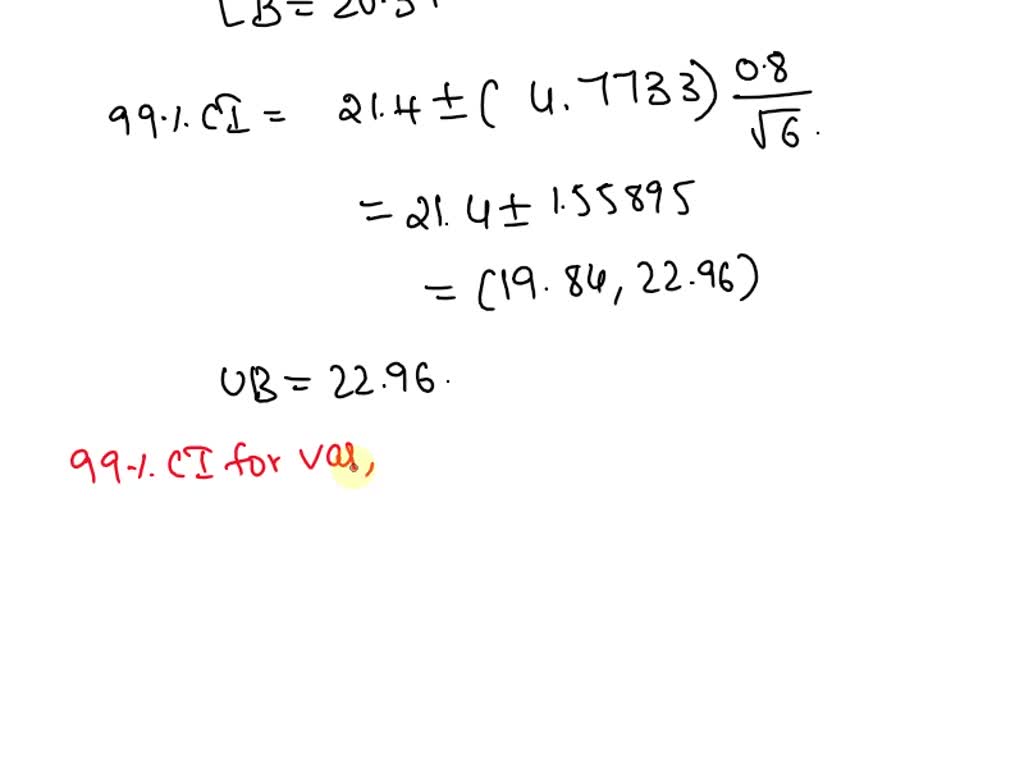 LB = 20.5
99.1. CI = 21.4 ± ( 4.7733) 0.8/√6.
= 21.4 ± 1.55895
= (19.84, 22.96)
UB = 22.96.
99.1. CI for var,